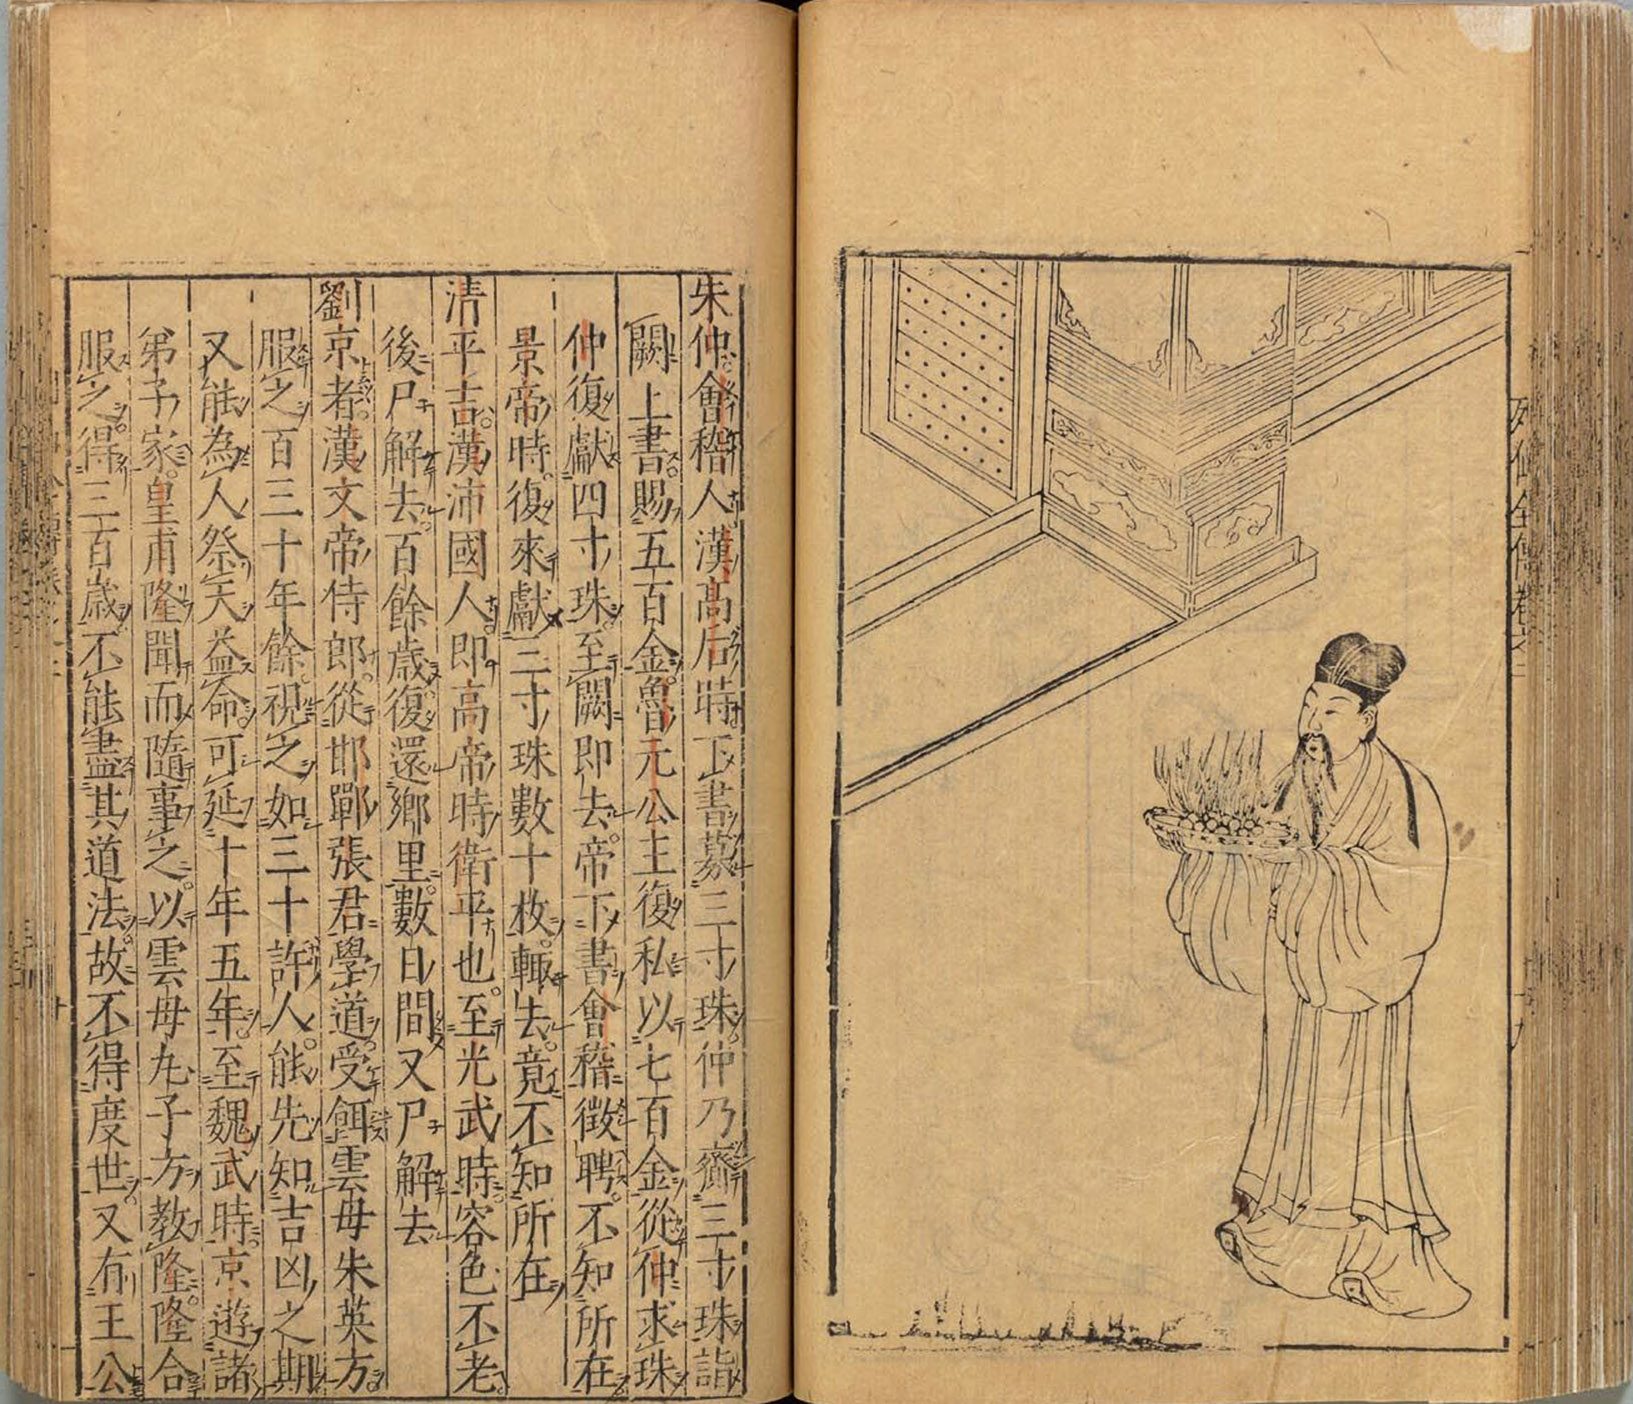 列仙全傳卷之二
十九
朱仲會稽人漢高后時下書募三寸珠仲乃齎三寸珠詣
闕上書賜五百金魯元公主復私以七百金從仲求珠
仲復獻四寸珠至闕即去帝下書會稽徵聘不知所在
景帝時復來獻三寸珠數十枚輒去竟不知所在
清平吉漢沛國人即高帝時衛平也至光武時容色不老
後尸解去百餘歲復還鄉里數日間又尸解去
劉京者漢文帝侍郎從邯鄲張君學道受餌雲母朱英方
服之百三十年餘視之如三十許人能先知吉凶之期
又能為人祭天益命可延十年五年至魏武時京遊諸
弟子家皇甫隆聞而隨事之以雲母丸子方教隆隆合
服之得三百歲不能盡其道法故不得度世又有王公